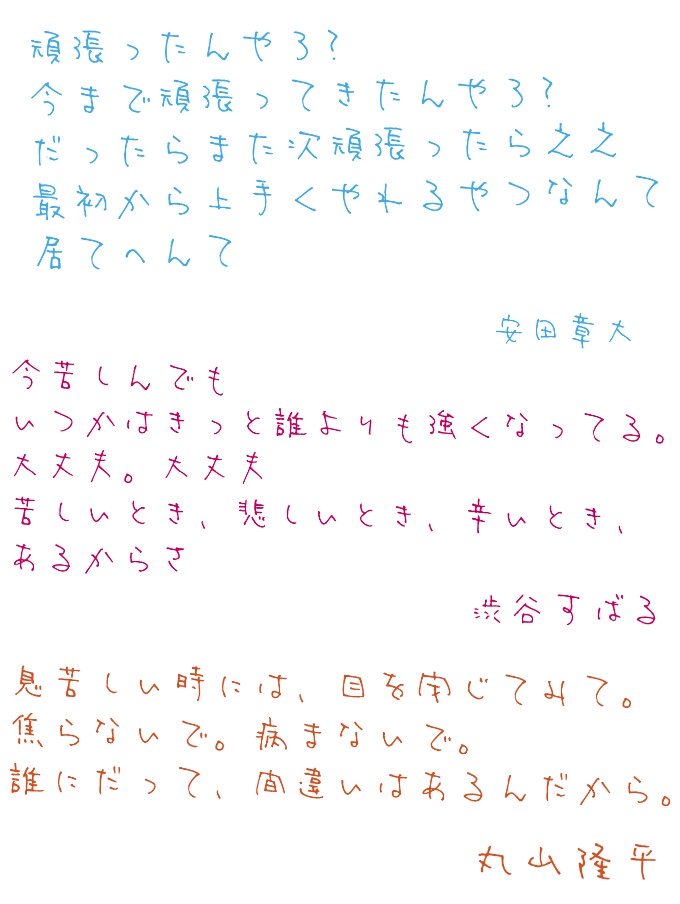 頑張ったんやろ?
今まで頑張ってきたんやろ?
だったらまた次頑張ったらええ
最初から上手くやれるやつなんて
居てへんて
安田章大
今苦しんでも
いつかはきっと誰よりも強くなってる。
大丈夫。大丈夫
苦しいとき、悲しいとき、辛いとき、
あるからさ
渋谷すばる
息苦しい時には、目を閉じてみて。
焦らないで。病まないで。
誰にだって、間違いはあるんだから。
丸山隆平